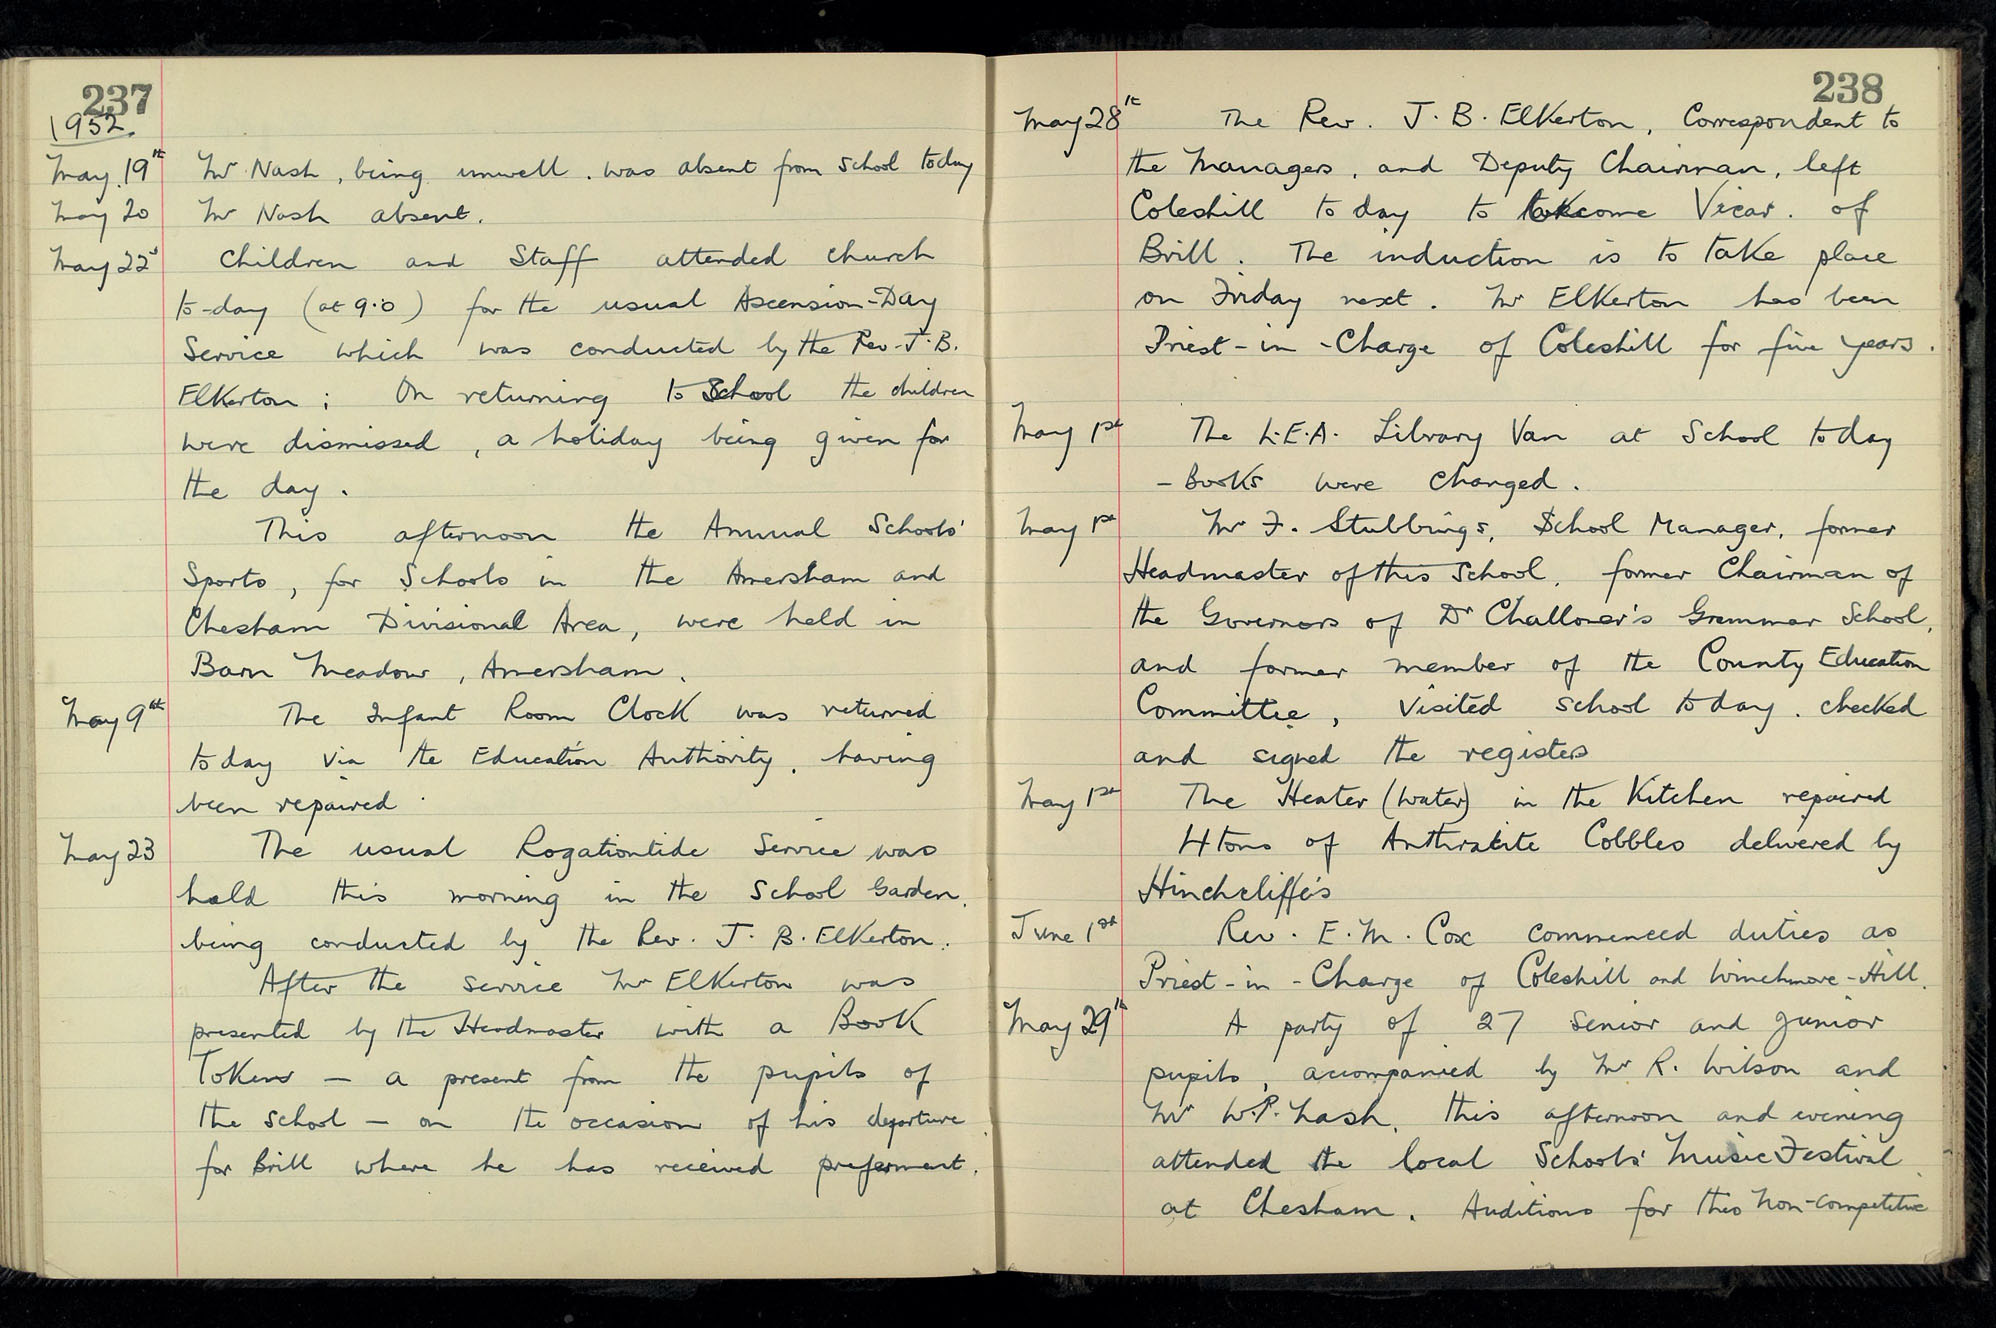 237
1952.
May. 19th Mr Nash, being unwell, was absent from School today
May 20 Mr Nash absent.
May 22d Children and Staff attended church
to-day (at 9.0) for the usual Ascension-Day
Service which was conducted by the Rev. J. B.
Elkerton; On returning to School the children
were dismissed, a holiday being given for
the day.
This afternoon the Annual Schools'
Sports, for Schools in the Amersham and
Chesham Divisional Area, were held in
Barn Meadow, Amersham.
May 9th The Infant Room Clock was returned
today via the Education Authority, having
been repaired.
May 23 The usual Rogationtide Service was
held this morning in the School Garden,
being conducted by the Rev. J. B. Elkerton.
After the service Mr Elkerton was
presented by the Headmaster with a Book
Token - a present from the pupils of
the School - on the occasion of his departure
for Brill where he has received preferment.
238
May 28th The Rev. J. B. Elkerton, Correspondent to
the Managers, and Deputy Chairman, left
Coleshill today to become Vicar of
Brill. The induction is to take place
on Friday next. Mr Elkerton has been
Priest-in-Charge of Coleshill for five years.
May 1st The L.E.A. Library Van at School today
- Books were changed.
May 1st Mr F. Stubbings, School Manager, former
Headmaster of this School, former Chairman of
the Governors of Dr Challoner's Grammar School,
and former member of the County Education
Committee, visited school today, checked
and signed the registers
May 1st The Heater (Water) in the Kitchen repaired
4 tons of Anthracite Cobbles delivered by
Hinchcliffe's
June 1st Rev. E. M. Cox commenced duties as
Priest-in-Charge of Coleshill and Winchmore-Hill.
May 29th A party of 27 senior and junior
pupils, accompanied by Mr R. Wilson and
Mr W.P. Nash, this afternoon and evening
attended the local Schools' Music Festival
at Chesham. Auditions for this Non-competitive